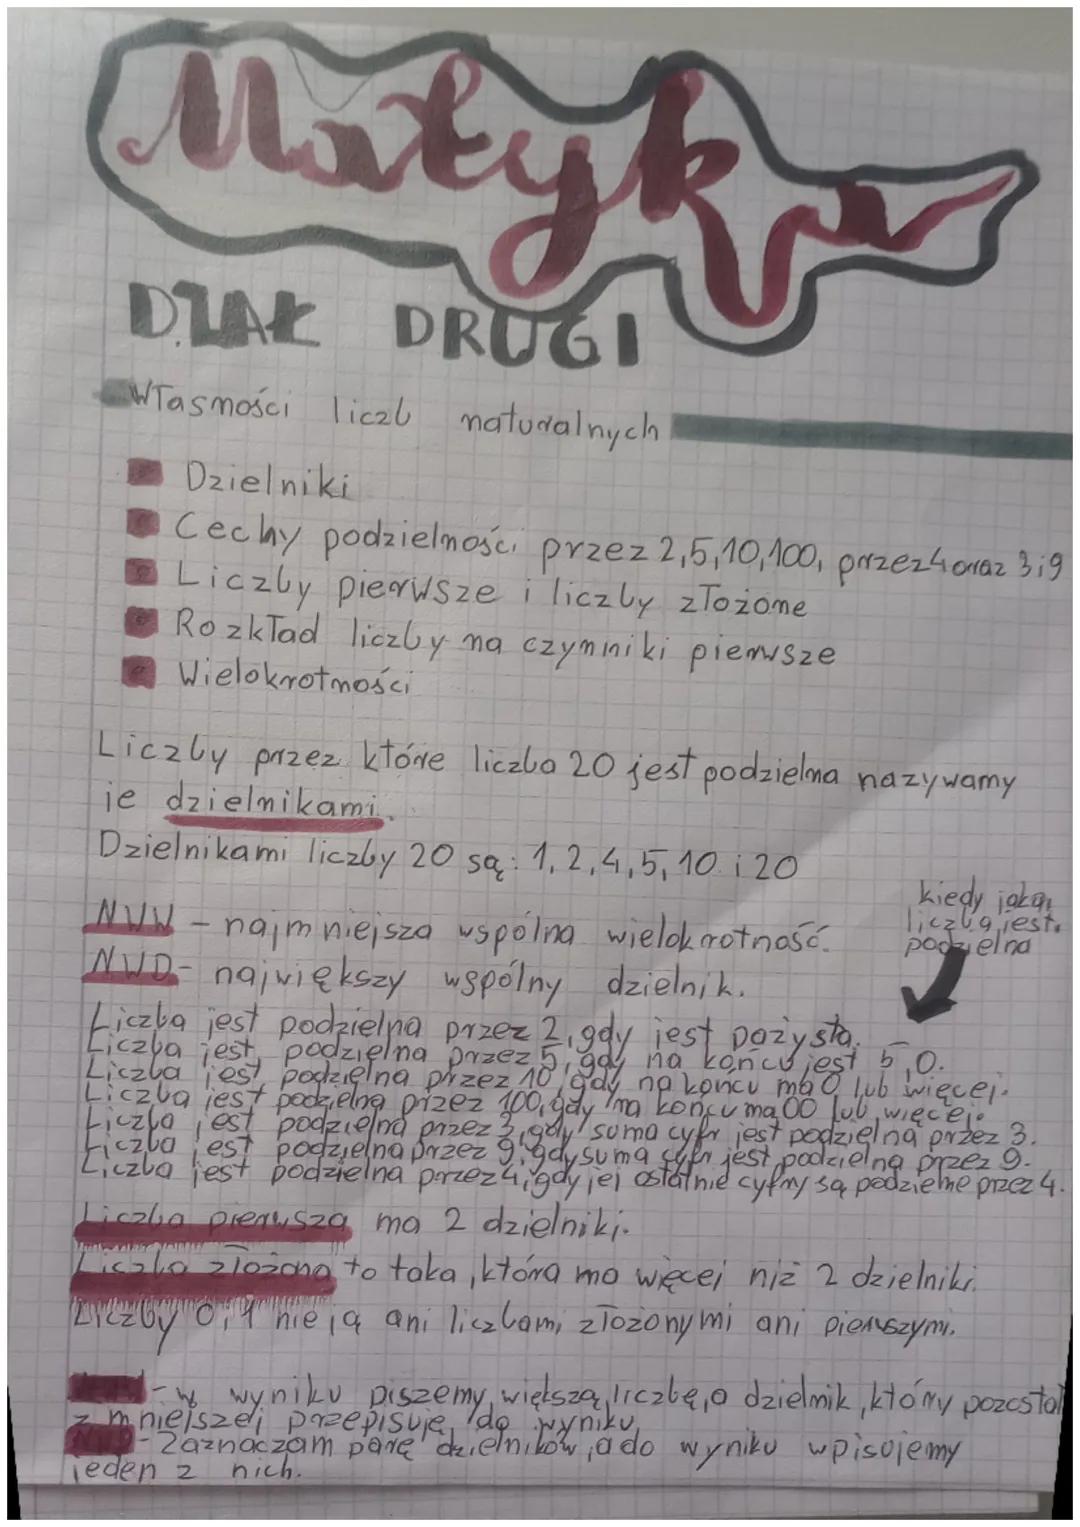 Matyka
DZIAŁ DRUGI
Własności liczb naturalnych
Dzielniki
Cechy podzielności przez 2,5,10,100, przez 4 oraz 3 i 9
Liczby pierwsze i liczby złożone
Rozkład liczby na czynniki pierwsze
Wielokrotności
Liczby przez które liczba 20 jest podzielna nazywamy
je dzielnikami.
Dzielnikami liczby 20 są: 1, 2, 4, 5, 10 i 20
kiedy jakaś
liczba jest
podzielna
NWW - najmniejsza wspólna wielokrotność.
NWD - największy wspólny dzielnik.
Liczba jest podzielna przez 2, gdy jest pażysta.
Liczba jest podzielna przez 5, gdy na końcu jest 5, 0.
Liczba jest podzielna przez 10, gdy na końcu ma 0 lub więcej.
Liczba jest podzielna przez 100, gdy na końcu ma 00 lub więcej.
Liczba jest podzielna przez 3, gdy suma cyfr jest podzielna przez 3.
Liczba jest podzielna przez 9, gdy suma cyfr jest podzielna przez 9.
Liczba jest podzielna przez 4, gdy jej ostatnie cyfry są podzielne przez 4.
Liczba pierwsza ma 2 dzielniki.
Liczba złożona to taka, która ma więcej niż 2 dzielniki.
Liczby 0, 1 nie są ani liczbami złożonymi ani pierwszymi.
NWW - w wyniku piszemy większą liczbę, a dzielnik, który pozostał
z mniejszej przepisuję do wyniku.
NWD - Zaznaczam parę dzielników, a do wyniku wpisujemy
jeden z nich.